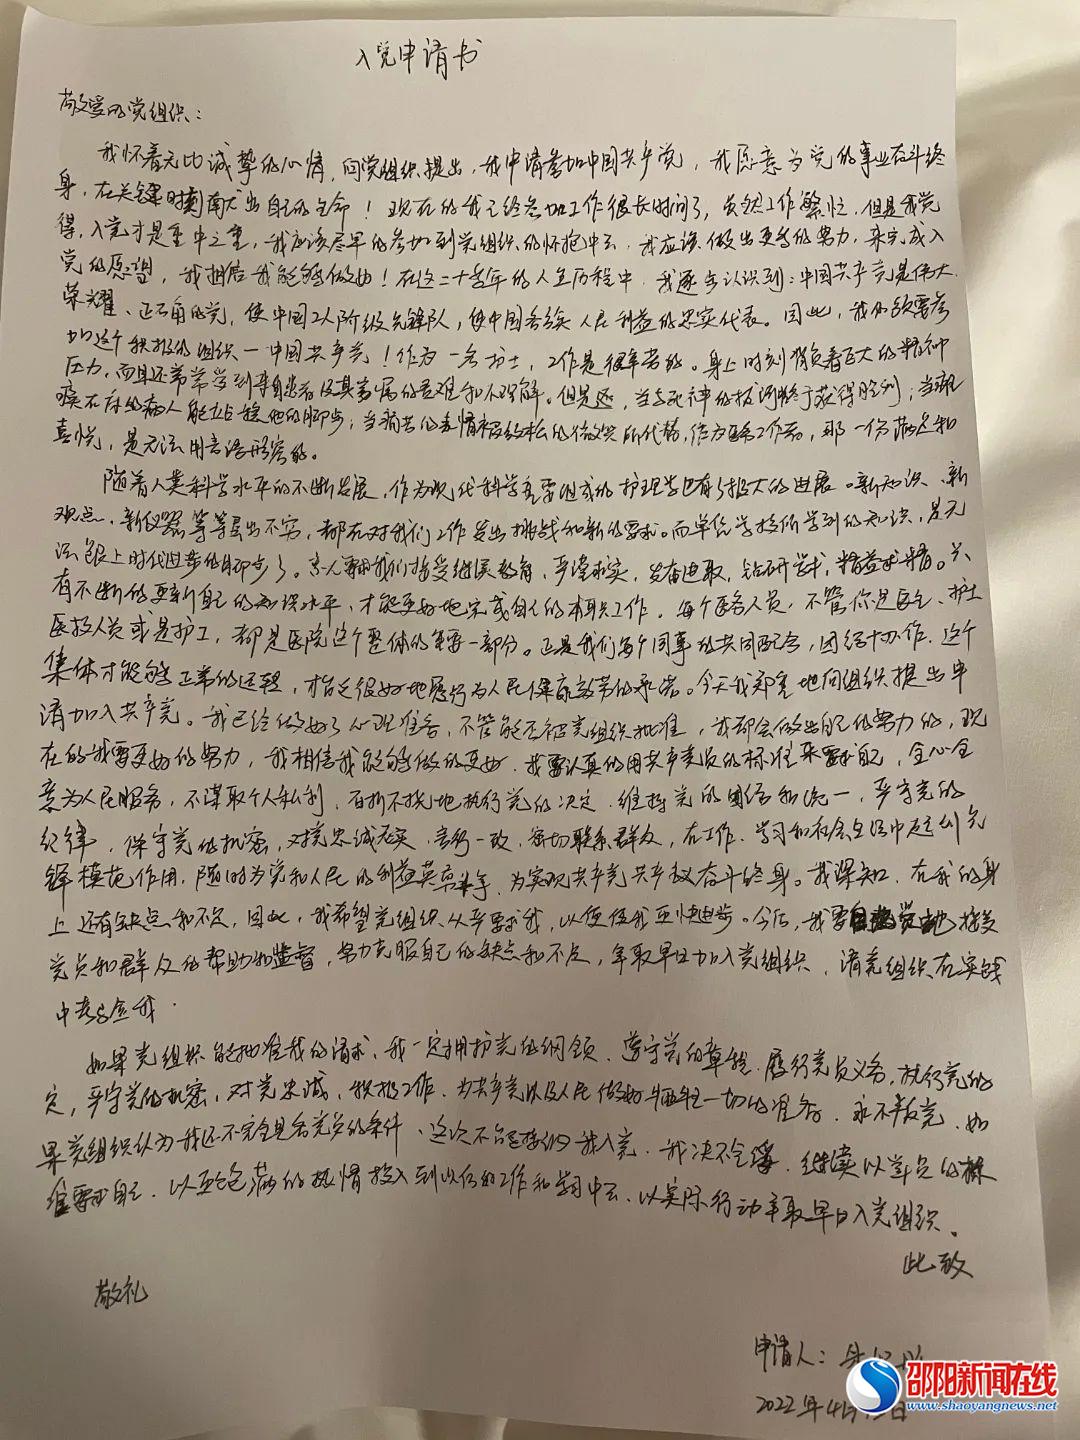 入党申请书
敬爱的党组织：
我怀着无比诚挚的心情，向党组织提出，我申请参加中国共产党，我愿意为党的事业奋斗终
身，在关键时刻献出自己的生命！现在的我已经参加工作很长时间了，虽然工作繁忙，但是我觉
得，入党才是重中之重，我应该尽早的参加到党组织的怀抱中去，我应该做出更多的努力，来完成入
党的愿望，我相信我能够做好！在这二十多年的人生历程中，我逐步认识到：中国共产党是伟大、
荣耀、正确的党，使中国工人阶级先锋队，使中国各族人民利益的忠实代表。因此，我必须要参
加这个积极的组织—中国共产党！作为一名护士，工作是很辛苦的。身上时刻背负着巨大的精神
压力，而且还常常受到患者及其家属的责难和不理解。但是，当与死神的拔河终于获得胜利；当
病床的病人能站起他的脚步；当痛苦的表情被轻松的微笑所代替，作为医务工作者，那一份满足和
喜悦，是无法用言语形容的。
随着人类科学水平的不断发展，作为现代科学重要组成的护理学也有了极大的进展。新知识、新
观点、新仪器等等层出不穷，都在对我们工作发出挑战和新的要求。而单凭学校所学到的知识，是无
法跟上时代进步的脚步了。我们接受继续教育，严谨求实，发奋进取，钻研学术，精益求精。只
有不断的更新自己的知识水平，才能更好地完成自己的本职工作。每个医务人员，不管你是医生、护士
医技人员或是护工，都是医院这个整体的重要一部分。正是我们每个同事的共同配合，团结协作，这个
集体才能够正常的运转，才能很好地履行为人民健康服务的承诺。今天我郑重地向组织提出申
请加入共产党。我已经做好了心理准备，不管能否被党组织批准，我都会做出自己的努力的，现
在的我需更好的努力，我相信我能够做的更好。我要认真的用共产党员的标准来要求自己，全心全
意为人民服务，不谋取个人私利，百折不挠地执行党的决定，维持党的团结和统一，严守党的
纪律，保守党的机密，对党忠诚老实，言行一致，密切联系群众，在工作、学习和社会生活中起到先
锋模范作用，随时为党和人民的利益英勇斗争，为实现共产党共产主义奋斗终身。我深知，在我的身
上还有缺点和不足，因此，我希望党组织从严要求我，以便使我更快进步。今后，我要自觉地接受
党员和群众的帮助和监督，努力克服自己的缺点和不足，争取早日加入党组织，请党组织在实践
中考验我。
如果党组织能批准我的请求，我一定拥护党的纲领，遵守党的章程，履行党员义务，执行党的
定，严守党的机密，对党忠诚，积极工作，为共产党以及人民做好牺牲一切的准备，永不叛党，如
果党组织认为我还不完全具备党员的条件，这次不能接纳我入党，我决不气馁，继续以党员的标
准要求自己，以更饱满的热情投入到以后的工作和学习中去，以实际行动争取早日入党组织。
此致
敬礼
申请人：
2022年4月
邵阳新闻在线
www.shaoyangnews.net